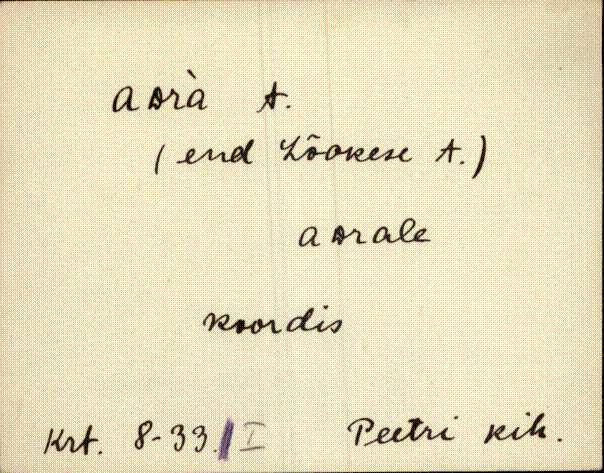 aᴅrà t.
(end Lõokese t.)
aᴅrale
koordis
Krt. 8-33. I Peetri kih.